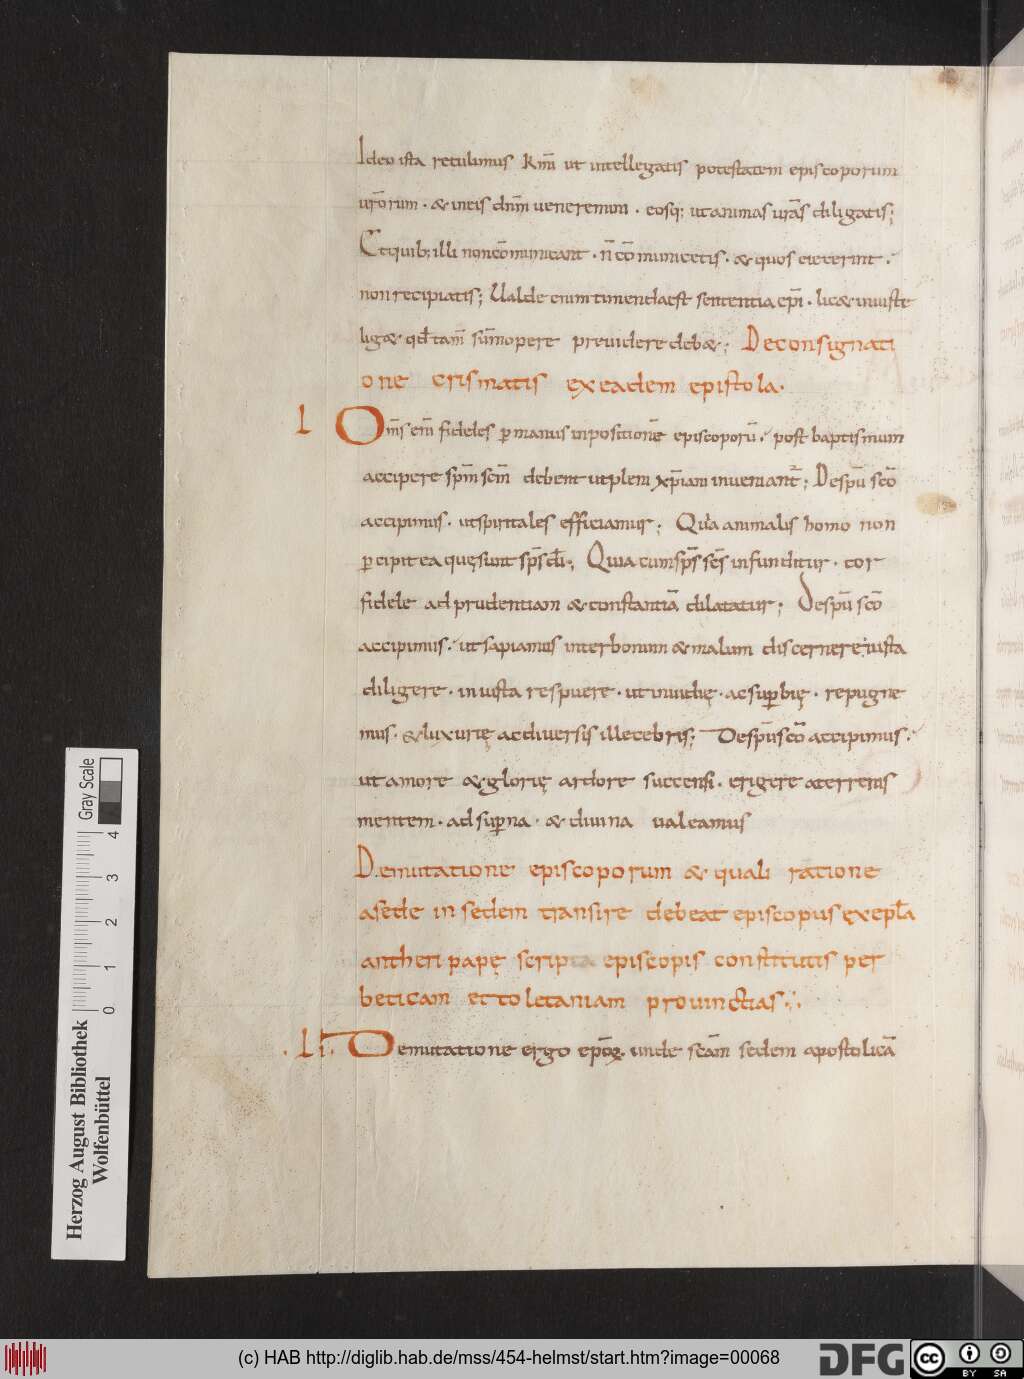 Ideo ista retulimus km̄i ut intellegatis potestatem episcoporum
ūrorum · & in eis dn̄m veneremini · eosq; ut animas vr̄as diligatis;
Et quib; illi non cōmunicant · n̄ cōmunicetis · & quos eiecerint ·
non recipiatis; Valde enim timenda est sententia ep̄i · lic& iniuste
lig& · qđ tam̄ sūmopere previdere deb&; De consignati
one crismatis ex eadem epistola.
L Om̄s em̄ fideles p manus inpositionē episcoporū · post baptismum
accipere sp̄m scm̄ debent ut pleni xp̄iani inveniant̄; De spū scō
accipimus · ut spiritales efficiamur; Quia animalis homo non
p cipit ea quę sunt sp̄s dī; Quia cum sp̄s sc̄s infunditur · cor
fidele ad prudentiam & constantiā dilatatur; De spū scō
accipimus · ut sapiamus inter bonum & malum discernere iusta
diligere · iniusta respuere · ut invidię · ac supbię · repugne
mus · & luxurię ac diversis illecebris; De spū scō accipimus ·
ut amore & glorię ardore succensi · erigere a terrenis
mentem · ad supna · & divina valeamus
De mutatione episcoporum & quali ratione
a sede in sedem transire debeat episcopus ex epl̄a
antheri papę scripta episcopis constitutis per
beticam et toletaniam provinctias
· Li · De mutatione ergo ep̄oꝝ · unde scām sedem apostolicā
Gray Scale
0 1 2 3 4
Herzog August Bibliothek
Wolfenbüttel
(c) HAB http://diglib.hab.de/mss/454-helmst/start.htm?image=00068
DFG
cc
BY SA